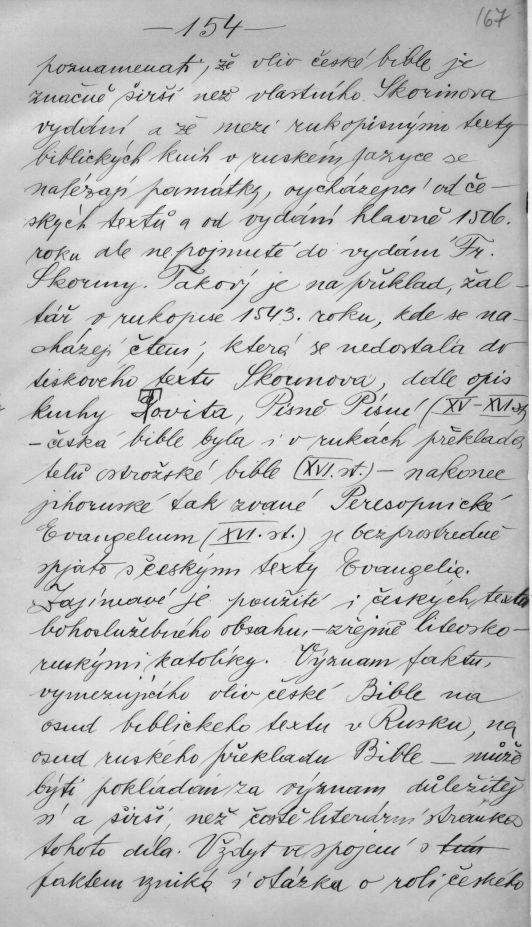 —154—
167
poznamenati, že vliv české bible je
značně širší než vlastního Skorinova
vydání a že mezi rukopisnými texty
biblických knih v ruském jazyce se
nalézají památky, vycházející od če-
ských textů a od vydání hlavně 1506.
roku ale nepojmuté do vydání Fr.
Skoriny. Takový je na příklad, žal-
tář v rukopise 1543. roku, kde se na-
cházejí čtení, která se nedostala do
tiskového textu Skorinova, dále opis
knihy Tovita, Písně Písní (XV–XVI st.)
– česká bible byla i v rukách překlada
telů ostrožské bible (XVI. st.) – nakonec
jihoruské tak zvané Peresopnické
Evangelium (XVI. st.) je bezprostředně
spjato s českými texty Evangelií.
Zajímavé je použití i českých textů
bohoslužebného obsahu, – zřejmě litevsko-
ruskými katolíky. Význam faktu,
vymezujícího vliv české Bible na
osud biblického textu v Rusku, na
osud ruského překladu Bible – může
býti pokládán za význam důležitěj
ší a širší, než čistě literární stránka
tohoto díla. Vždyť ve spojení s tím
faktem vzniká i otázka o roli českého